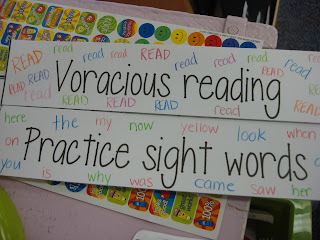 READ read read read READ read read read read
READ Voracious reading read
READ READ READ
read READ READ READ read READ
here the my now yellow look when
on Practice sight words a
you is why was came saw her
100%